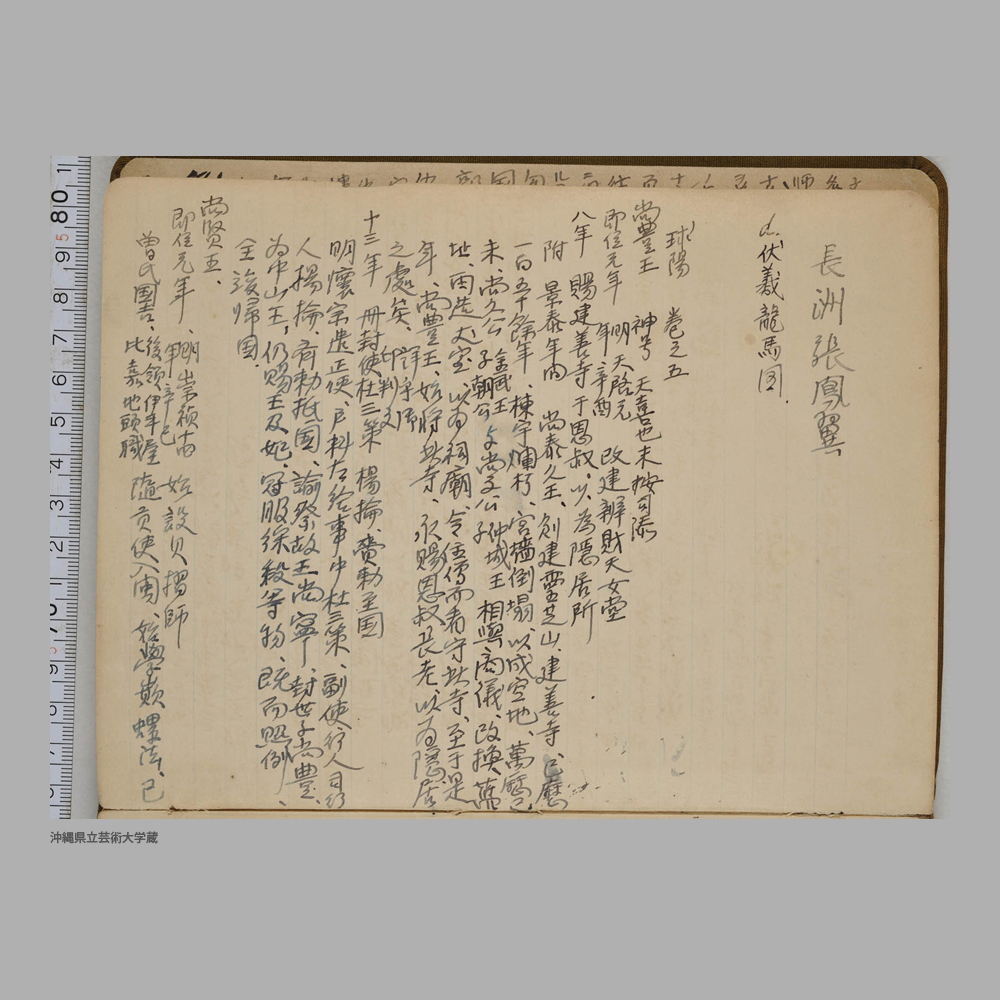 長洲張鳳翼
伏羲龍馬図
球陽 巻之五
尚豊王 神号 天喜也末按司添
即位元年 明天啓元年辛酉 改建辨財天女堂
八年 賜建善寺于恩叔以為隠居所
附 景泰年間 尚泰久王、創建霊芝山建善寺、已歴
一百五十餘年、棟宇爛朽、宮墻倒塌、以成空地、萬暦己
未、尚久公 子朝公 金武王 尚文公 仲城王 相與商儀、改換舊
址、因造丈室、以為祠廟、令住僧而看守此寺、至于是
年、尚豊王、始将此寺、永賜恩叔長老、以為隠居
之處矣
十三年 冊封使杜三策 楊掄、賫勅至国
明懐宗遣正使、戸科左給事中杜三策、副使行人司
人楊掄、賫勅抵国、諭祭故王尚寧、封世子尚豊、
為中山王、仍賜王及妃、冠服綵緞等物、既而照例、
全竣帰国、
尚賢王、
即位元年、明崇禎十四年辛巳 始設貝摺師
曽氏國吉、後領伊平屋比嘉地頭職 隨貢使入閩、始學煮螺法、已
沖縄県立芸術大学蔵